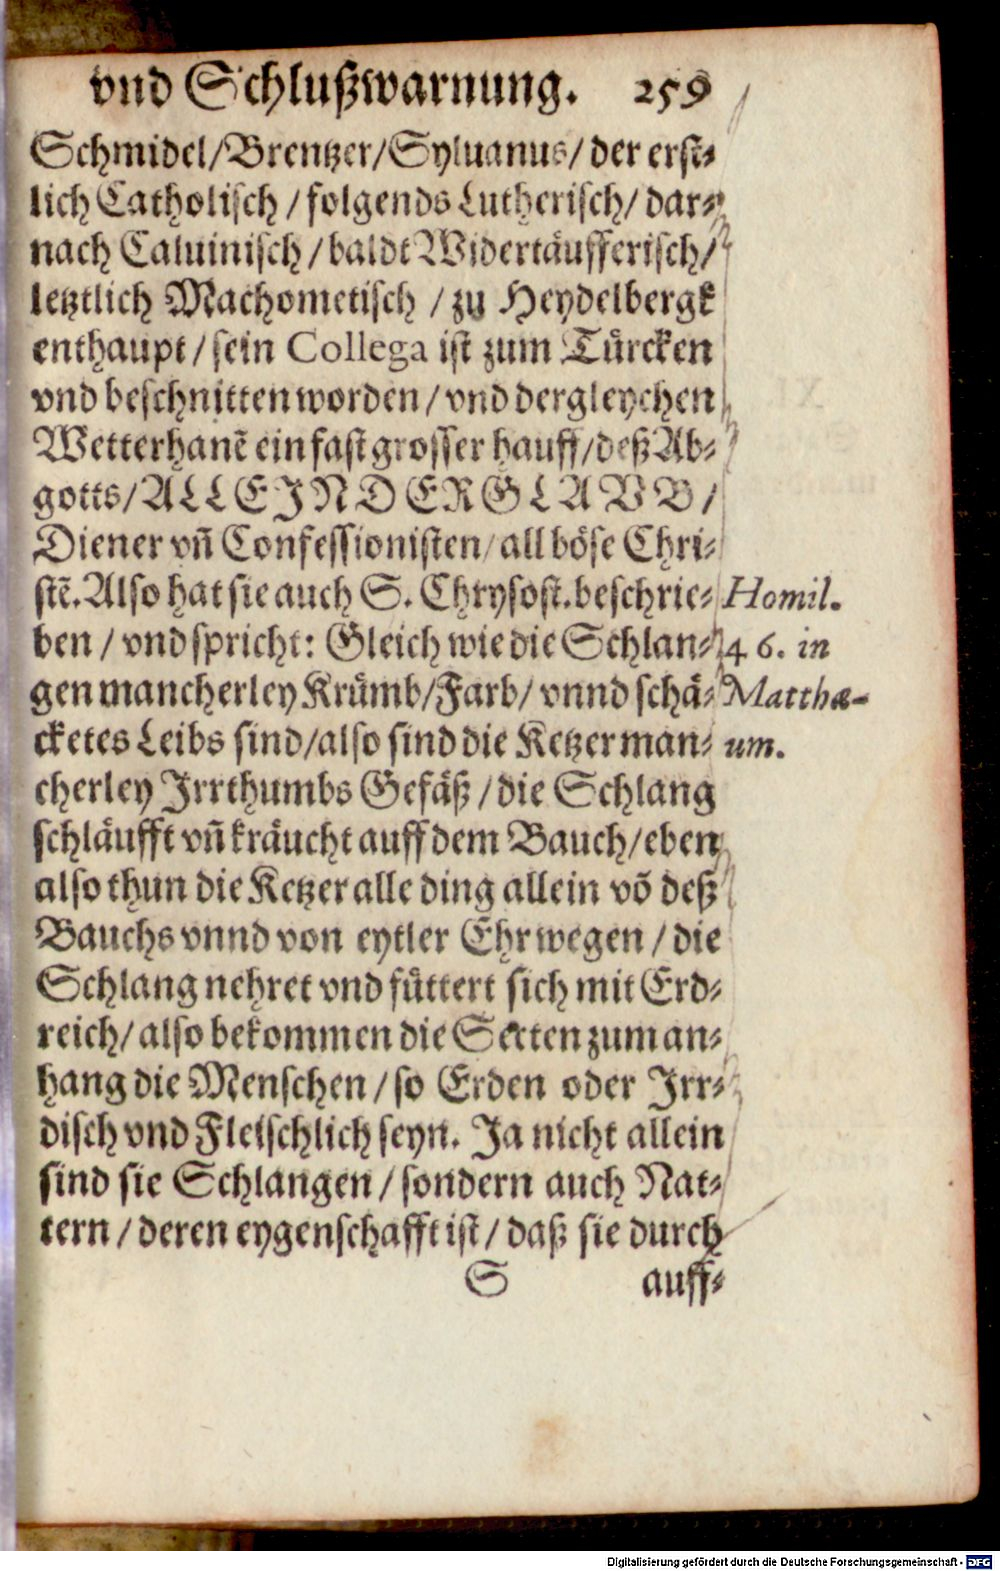 vnd Schlußwarnung. 259
Schmidel/Brentzer/Syluanus/der erst-
lich Catholisch/folgends Lutherisch/dar-
nach Caluinisch/baldt Widertäufferisch/
letztlich Machometisch/zu Heydelbergk
enthaupt/sein Collega ist zum Türcken
vnd beschnitten worden/vnd dergleychen
Wetterhanē ein fast grosser hauff/deß Ab-
gotts/ALLEIN DER GLAVB/
Diener vñ Confessionisten/all böse Chri-
stē. Also hat sie auch S. Chrysost. beschrie-
ben/vnd spricht: Gleich wie die Schlan-
gen mancherley Krümb/Farb/vnnd schä-
cketes Leibs sind/also sind die Ketzer man-
cherley Irrthumbs Gefäß/die Schlang
schläufft vñ kräucht auff dem Bauch/eben
also thun die Ketzer alle ding allein võ deß
Bauchs vnnd von eytler Ehr wegen/die
Schlang nehret vnd füttert sich mit Erd-
reich/also bekommen die Secten zum an-
hang die Menschen/so Erden oder Irr-
disch vnd Fleischlich seyn. Ja nicht allein
sind sie Schlangen/sondern auch Nat-
tern/deren eygenschafft ist/daß sie durch
S auff-
Homil.
46. in
Matthæ-
um.
Digitalisierung gefördert durch die Deutsche Forschungsgemeinschaft - DFG